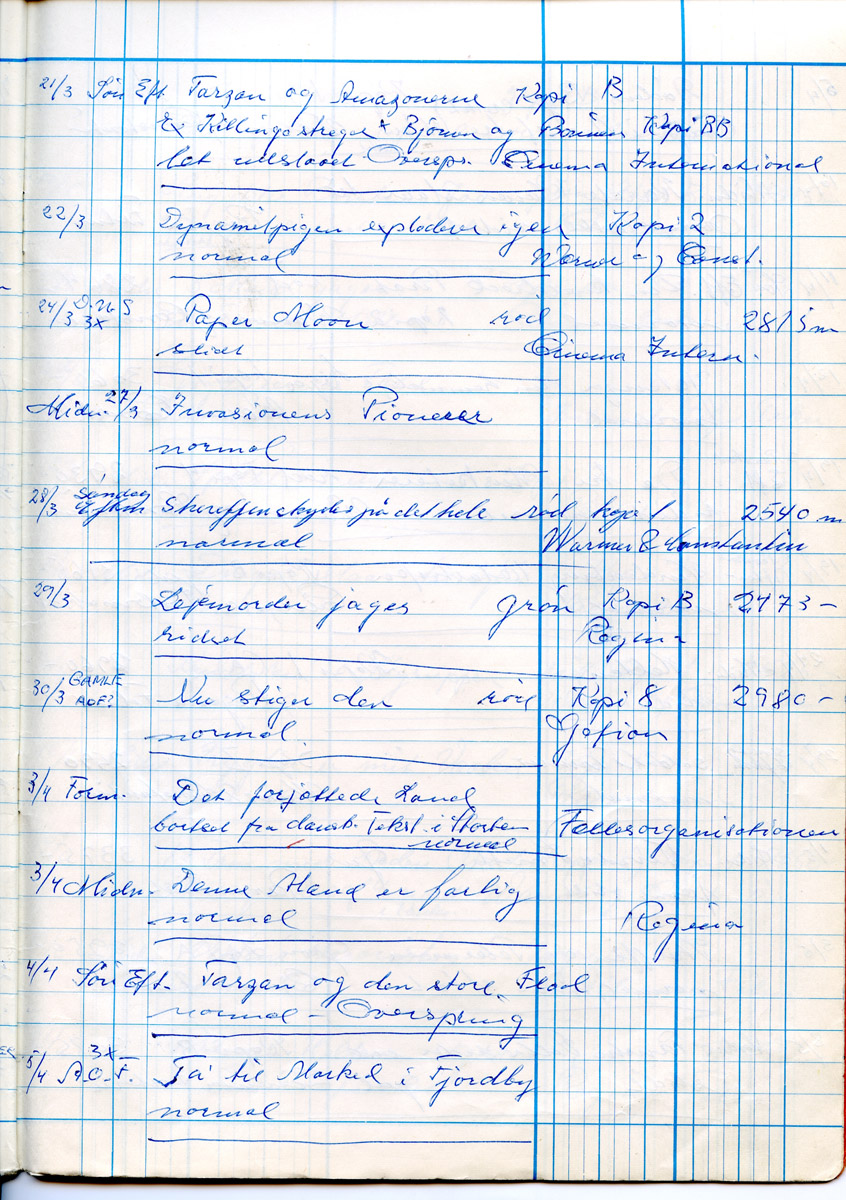 21/3 Søn Eft Tarzan og Amazonerne Kopi B
Ex Killingestreger + Björnen og Kopi BB
let Overspr. Cinema International
22/3 Dynamitpigen exploderer igen Kopi 2
normal Warner og Const.
24/3 3x Paper Moon röd 2815 m
slidt Cinema Intern.
Midn. 27/3 Invasionens Pionerer
normal
28/3 Søndag Eftm Sheriffen skyder på det hele röd kopi 1 2540 m
normal Warner & Constantin
29/3 Lejemorder jages grön Kopi B 2473 -
ridset Regina
30/3 GAMLE AOF? Nu stiger den röd Kopi 8 2980 -
normal. Gefion
3/4 Form. Det forjættede Land
bortset fra dansk Tekst i Starten normal Fællesorganisationen
3/4 Midn. Denne Mand er farlig
normal Regina
4/4 Søn Eft. Tarzan og den store Flod
normal - Overspring
5/4 3x A.O.F. Tå til Marked i Fjordby
normal